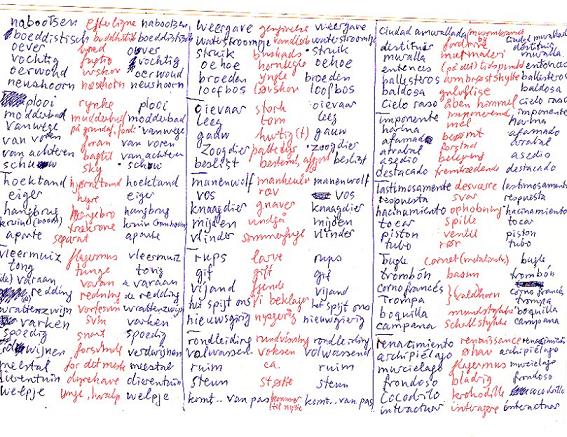 nabootsen efterligne nabootsen
boeddistisch buddhistisk boeddistisch
oever bred oever
vochtig fugtig vochtig
oerwoud urskov oerwoud
neushoorn næsehorn neushoorn
plooi rynke plooi
modderbad mudderbad modderbad
vanwege på grund af vanwege
van voren foran van voren
van achteren bagtil van achteren
schuw sky schuw
hoektand hjørnetand hoektand
eiger eiger
hangbrug hængebro hangbrug
aparte separat aparte
vleermuis flagermus vleermuis
tong tunge tong
(de) varaan varan varaan
redding redning de redding
wrattenzwijn vortesvin wrattenzwijn
varken svin varken
spoedig snart spoedig
verdwijnen forsvinde verdwijnen
meestal for det meste meestal
dierentuin dyrehave dierentuin
welpje unge, hvalp welpje
weergave gengivelse weergave
waterstroompje vandløb waterstroompje
struik buskads struik
oehoe hornugle oehoe
broeden yngle broeden
loofbos løvskov loofbos
oievaar stork oievaar
leeg tom leeg
gauw hurtig(t) gauw
zoogdier pattedyr zoogdier
beslist bestemt, afgjort beslist
manenwolf mankeulv manenwolf
vos ræv vos
knaagdier gnaver knaagdier
mijden undgå mijden
vlinder sommerfugl vlinder
rups larve rups
gif gift gif
vijand fjende vijand
het spijt ons vi beklager het spijt ons
nieuwsgierig nysgerrig nieuwsgierig
rondleiding rundvisning rondleiding
volwassen voksen volwassend
ruim ca. ruim
steun støtte steun
komt.. van pas kommer til nytte komt.. van pas
ciudad amurallada ciudad murallada
destituir fordrive destituir
muralla mur muralla
entonces (på det) tidspunkt entonces
ballesteros armbrøstskytte ballesteros
baldosa gulvflise baldosa
cielo raso åben himmel cielo raso
imponente imponerende imponente
harina mel harina
afamado berømt afamado
arrabal forstad arrabal
asedio belejring asedio
destacado fremtrædende destacado
lastimosamente desværre lastimosamente
respuesta svar respuesta
hacinamiento ophobning hacinamiento
tocar spille tocar
piston ventil piston
tubo rør tubo
bugle cornet bugle
trombón basun trombón
corno francés valdhorn corno francés
trompa trompa
boquilla mundstykke boquilla
campana schallstykke campana
renacimiento renaissance renacimiento
archipiélago øhav archipiélago
murcielago flagermus murcielago
frondoso bladrig frondoso
cocodrilo krokodille cocodrilo
interactuar interagere interactuar